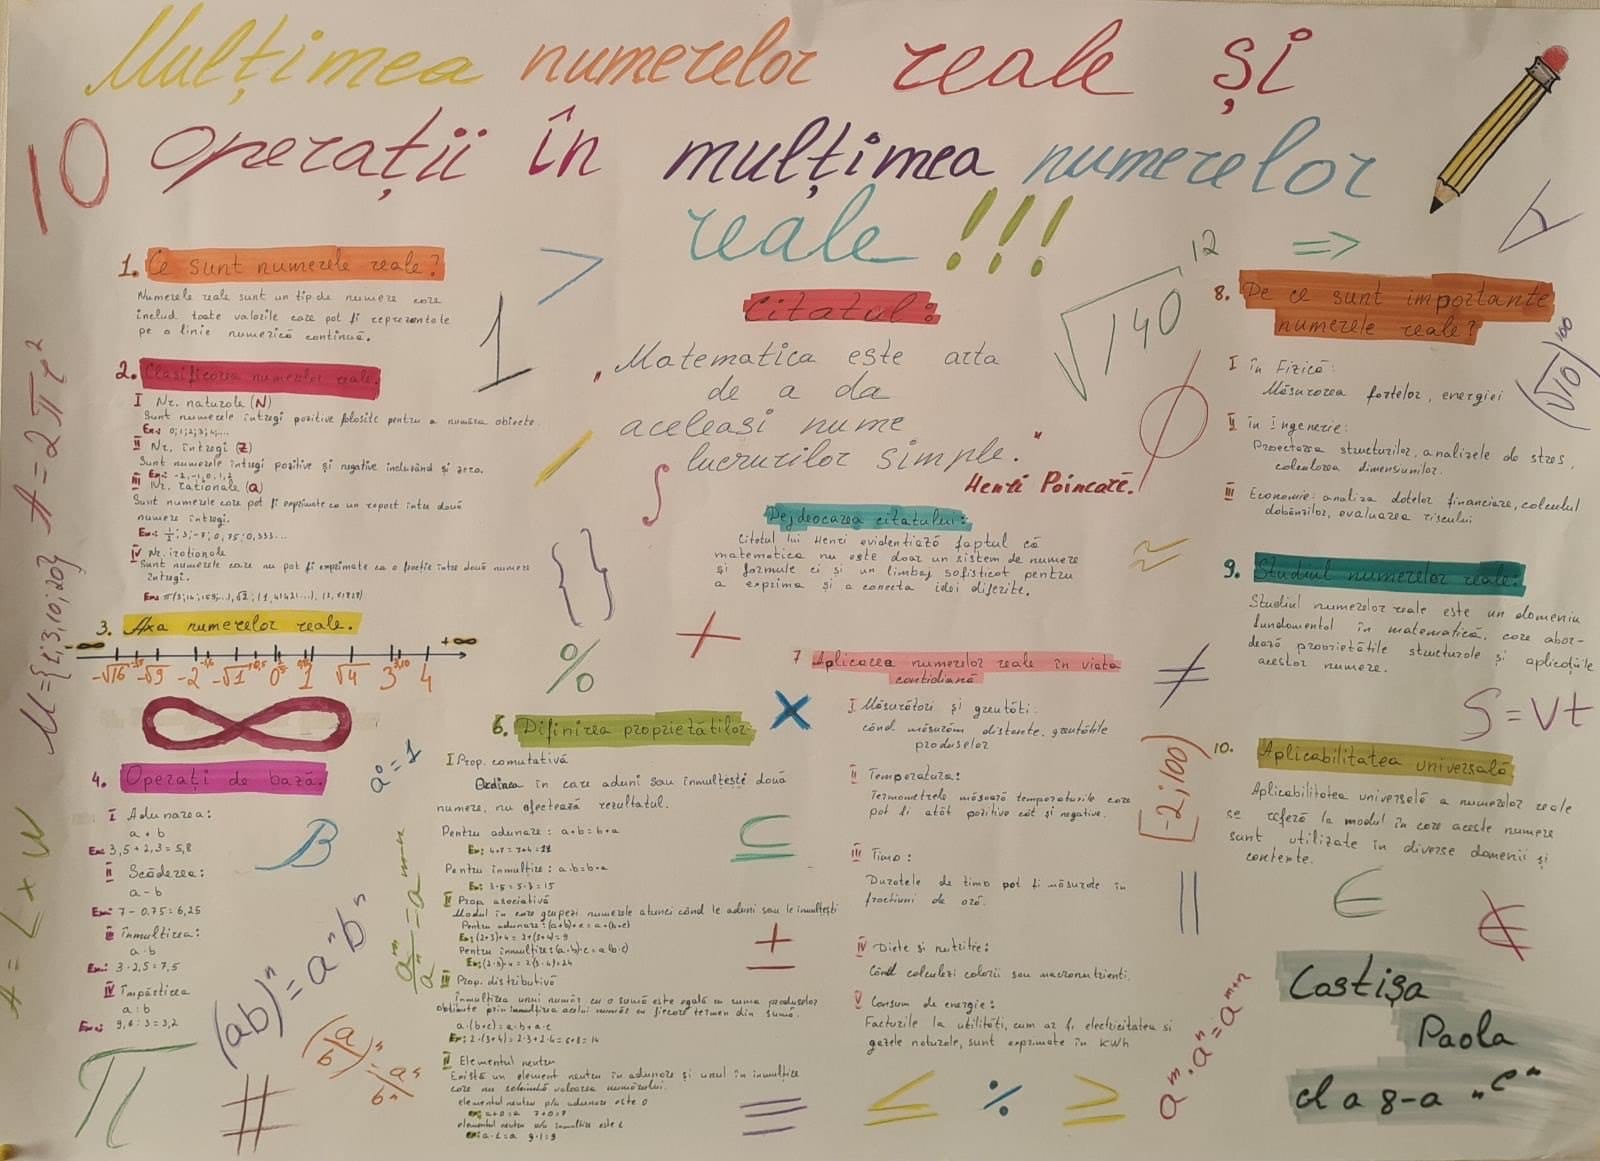 Mulțimea numerelor reale și
operații în mulțimea numerelor
reale !!!
1. Ce sunt numerele reale?
Numerele reale sunt un tip de numere care
includ toate valorile care pot fi reprezentate
pe o linie numerică continuă.
2. Clasificarea numerelor reale.
I Nr. naturale (N)
Sunt numerele întregi pozitive folosite pentru a număra obiecte.
Ex: 0;1;2;3;4;...
II Nr. întregi (Z)
Sunt numerele întregi pozitive și negative incluzând și zero.
Ex: -2,-1,0,1,2
III Nr. raționale (Q)
Sunt numerele care pot fi exprimate ca un raport între două
numere întregi.
Ex: 1/2; 3; -7; 0,75; 0,333...
IV Nr. iraționale
Sunt numerele care nu pot fi exprimate ca o fracție între două numere
întregi.
3. Axa numerelor reale.
-∞ +∞
-√16 -√9 -2 -√1 0 1 √4 3 4
4. Operați de bază.
I Adunarea:
a+b
Ex: 3,5+2,3=5,8
II Scăderea:
a-b
Ex: 7-0.75=6,25
III Înmulțirea:
a·b
Ex: 3·2,5=7,5
IV Împărțirea
a:b
Ex: 9,6:3=3,2
Citatul:
„Matematica este arta
de a da
aceleasi nume
lucrurilor simple."
Henri Poincaré.
Citatul lui Henri evidentiază faptul că
matematica nu este doar un sistem de numere
și formule ci și un limbaj sofisticat pentru
a exprima și a conecta idei diferite.
6. Difinirea proprietatilor
I Prop. comutativă
Ordinea în care aduni sau înmulțești două
numere, nu afectează rezultatul.
Pentru adunare: a+b=b+a
Pentru înmulțire: a·b=b·a
Ex: 3·5=5·3=15
II Prop. asociativă
Modul în care grupezi numerele atunci când le aduni sau le înmulțești
Pentru adunare: (a+b)+c=a+(b+c)
Ex: (2+3)+4=2+(3+4)=9
Pentru înmulțire: (a·b)·c=a(b·c)
Ex: (2·3)·4=2(3·4)=24
III Prop. distributivă
Înmulțirea unui număr cu o sumă este egală cu suma produselor
obținute prin înmulțirea acelui număr cu fiecare termen din sumă.
a·(b+c)=a·b+a·c
Ex: 2·(3+4)=2·3+2·4=6+8=14
Elementul neutru
Există un element neutru în adunare și unul în înmulțire
care nu schimbă valoarea numărului.
elementul neutru p/u adunare este 0
elementul neutru p/u înmulțire este 1
7 Aplicarea numerelor reale în viata
contidiană
I Măsurători și greutăți:
când măsurăm distante, greutățile
produselor
II Temperatura:
Termometrele măsoară temperaturile care
pot fi atât pozitive cât și negative.
III Timp:
Duratele de timp pot fi măsurate in
fracțiuni de oră.
IV Diete si nutritie:
Când calculezi calorii sau macronutrienti.
V Consum de energie:
Facturile la utilități, cum ar fi electricitatea si
gazele naturale, sunt exprimate în kWh
8. De ce sunt importante
numerele reale?
I în Fizică:
Măsurarea forțelor, energiei
II în ingenerie:
Proiectarea structurilor, analizele de stres,
calcularea dimensiunilor.
III Economie: analiza datelor financiare, calculul
dobânzilor, evaluarea riscului
9. Studiul numerelor reale:
Studiul numerelor reale este un domeniu
fundamental în matematică, care abor-
dează proprietățile structurale și aplicațiile
acestor numere.
10. Aplicabilitatea universală
Aplicabilitatea universală a numerelor reale
se referă la modul în care aceste numere
sunt utilizate în diverse domenii și
contexte.
Costișa
Paola
cl a 8-a „C"
10
1
>
√140
12
⇒
(√10)¹⁰⁰
M={1;3;10;20}
A=2πr²
A=L×W
{ }
∫
%
+
×
≈
≠
S=Vt
[-2;100)
a⁰=1
B
⊆
||
∈
±
(ab)ⁿ=aⁿbⁿ
aᵐ/aⁿ=aᵐ⁻ⁿ
(a/b)ⁿ=aⁿ/bⁿ
aᵐ·aⁿ=aᵐ⁺ⁿ
π
#
≡
≤
÷
≥